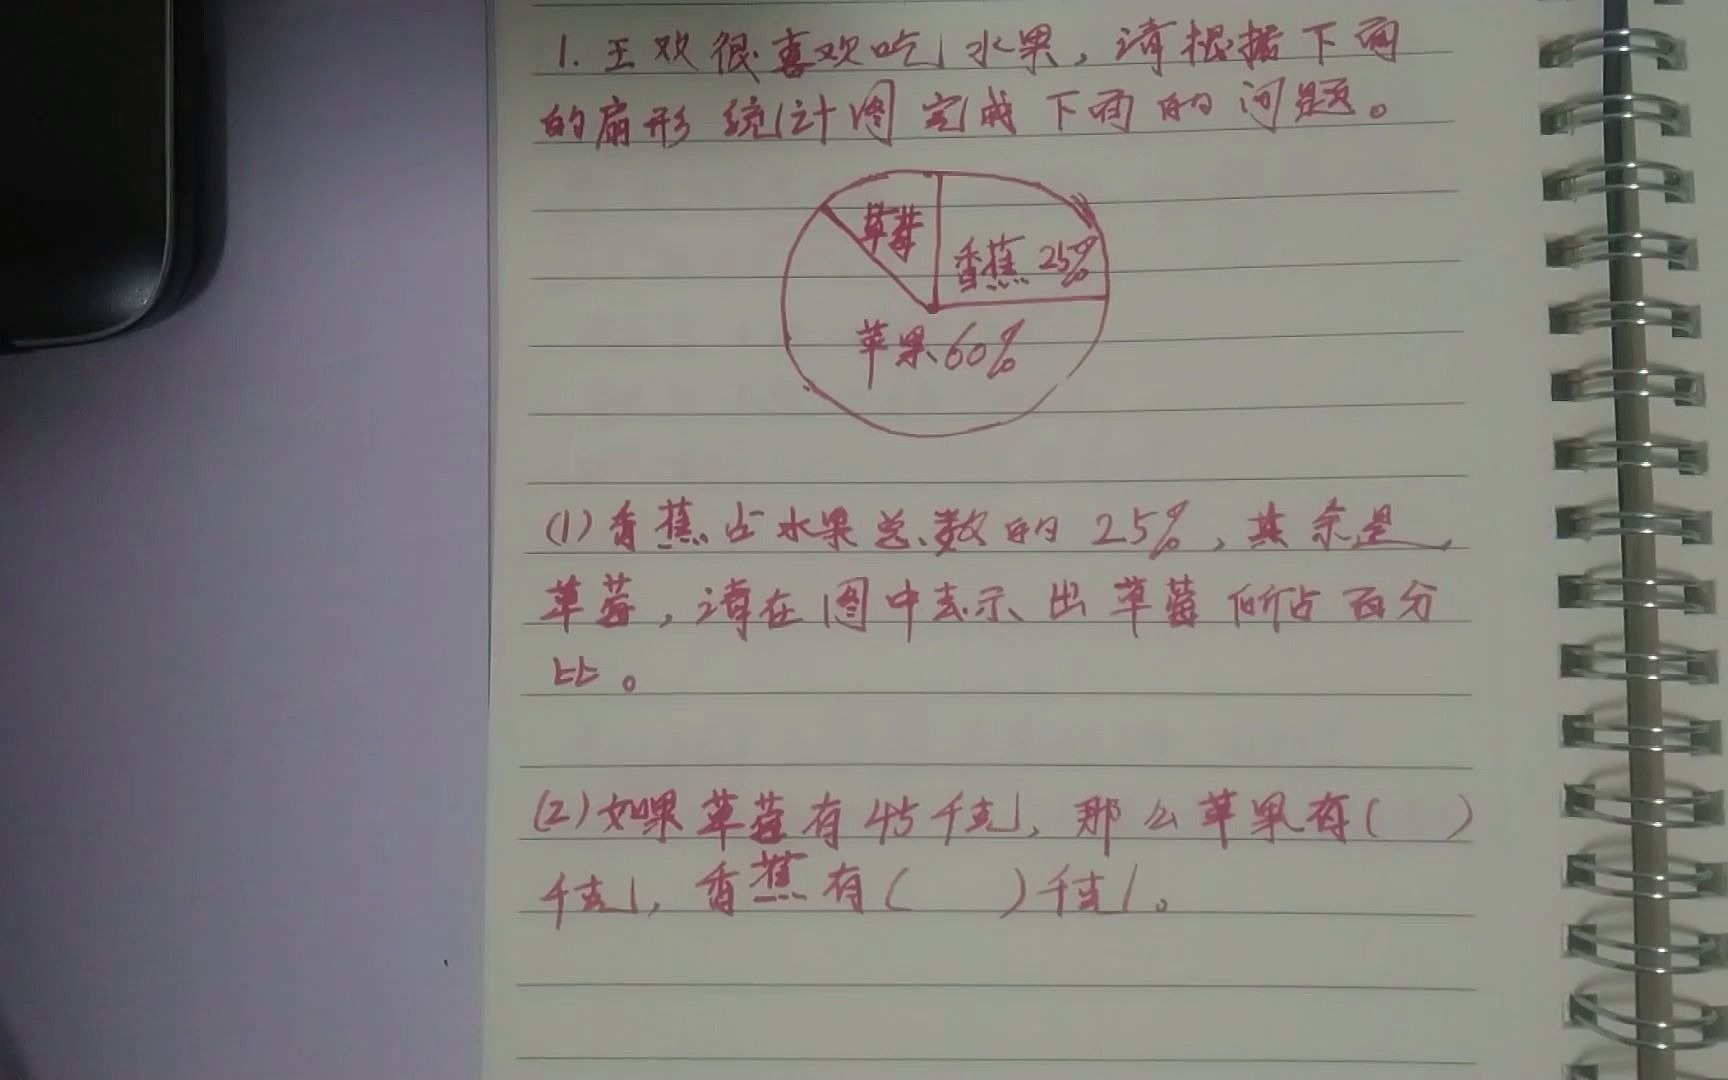 1. 王欢很喜欢吃水果，请根据下面
的扇形统计图完成下面的问题。
草莓
香蕉 25%
苹果 60%
(1) 香蕉占水果总数的 25%，其余是
草莓，请在图中表示出草莓所占百分
比。
(2) 如果草莓有 45 千克，那么苹果有(  )
千克，香蕉有(  )千克。